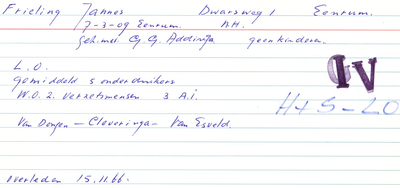 Frieling Jannes Dwarsweg 1 Eenrum.
7-3-09 Eenrum. N.H.
geh. met G. G. Addinga geen kinderen.
L.O.
gemiddeld 5 onderduikers
W.O.2. verzetsmensen 3 A.i.
OIV
H+S-LO
Van Dongen - Cleveringa - Van Esveld.
overleden 15.11.66.